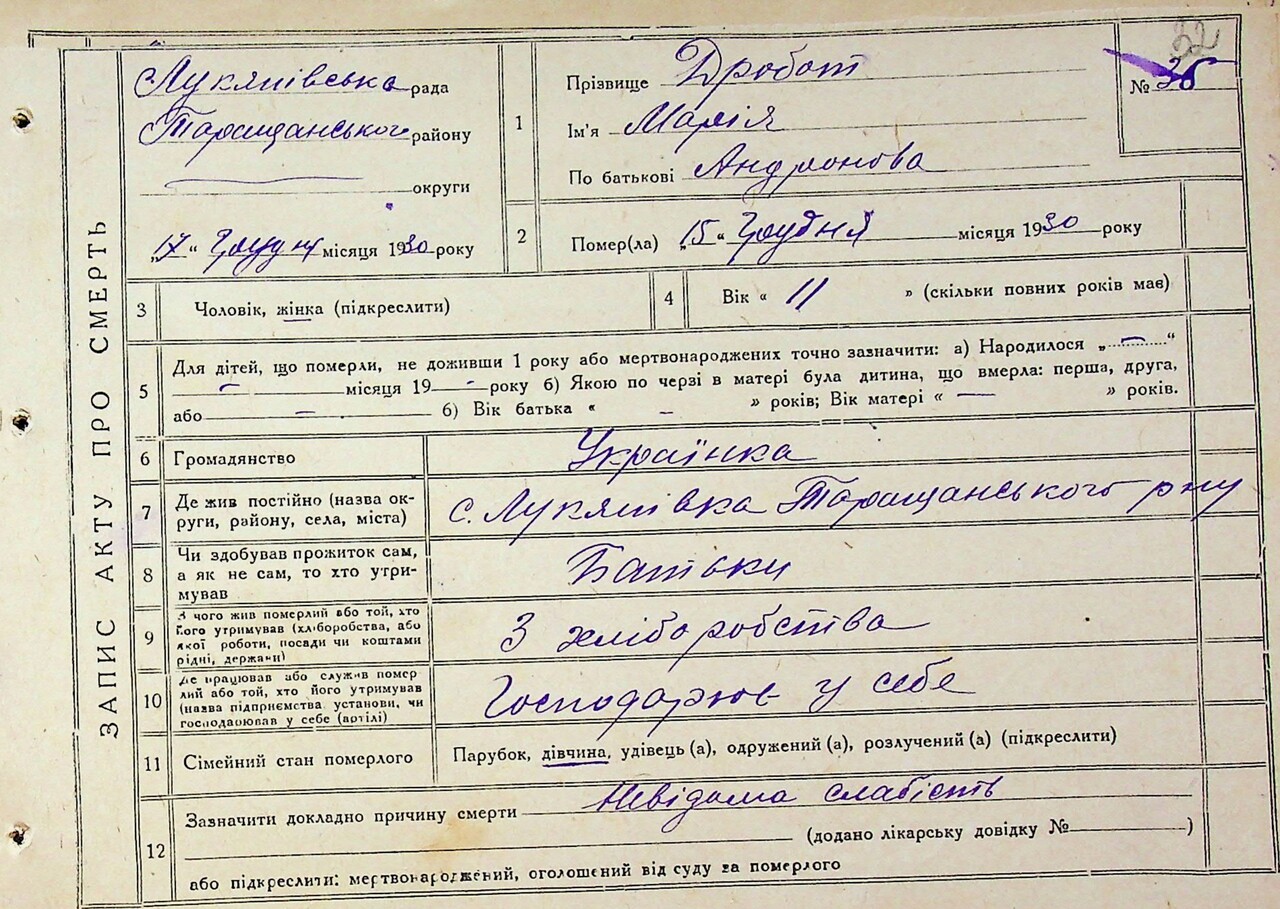 ЗАПИС АКТУ ПРО СМЕРТЬ
Лукянівська рада
Таращанського району
округи
„17“ Грудня місяця 1930 року
1
Прізвище Дробот
Ім'я Марія
По батькові Андронова
32
№ 36
2
Помер(ла) „15“ Грудня місяця 1930 року
3
Чоловік, жінка (підкреслити)
4
Вік « 11 » (скільки повних років має)
5
Для дітей, що померли, не доживши 1 року або мертвонароджених точно зазначити: а) Народилося „ — “
— місяця 19 — року б) Якою по черзі в матері була дитина, що вмерла: перша, друга,
або — б) Вік батька « — » років; Вік матері « — » років.
6
Громадянство
Українка
7
Де жив постійно (назва ок-
руги, району, села, міста)
с. Лукянівка Таращанського р ну
8
Чи здобував прожиток сам,
а як не сам, то хто утри-
мував
Батьки
9
З чого жив померлий або той, хто
його утримував (хліборобства, або
якої роботи, посади чи коштами
рідні, держави)
З хліборобства
10
Де працював або служив помер
лий або той, хто його утримував
(назва підприємства установи, чи
господаював у себе (артілі)
Господарюв у себе
11
Сімейний стан померлого
Парубок, дівчина, удівець (а), одружений (а), розлучений (а) (підкреслити)
12
Зазначити докладно причину смерти Невідома слабість
(додано лікарську довідку № )
або підкреслити: мертвонароджений, оголошений від суду за померлого